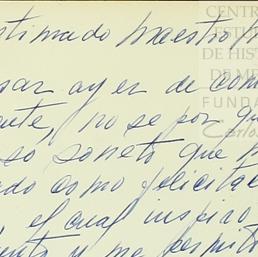 stimado Maestro y
sar ayer de com
ente, no se por qu
so soneto que h
do como felicitac
, el cual inspiro
ento y me permito
CENTR
ESTU
DE HIST
DE M
FUND
Carlos